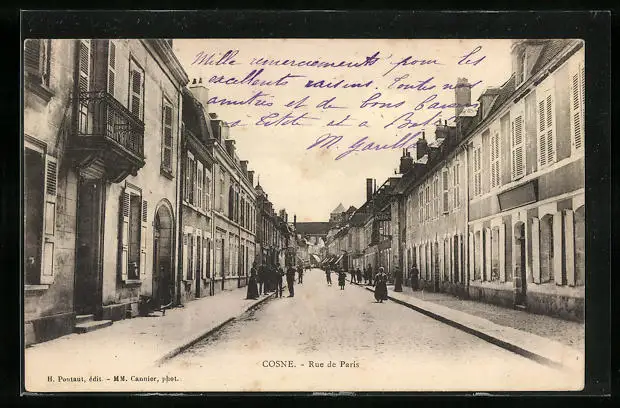 Mille remerciements pour les
excellents raisins. Toutes nos
amitiés et de bons baisers
à Totote et à Bob
M. Gaull
COSNE. - Rue de Paris
H. Pontaut, édit. - MM. Cannier, phot.